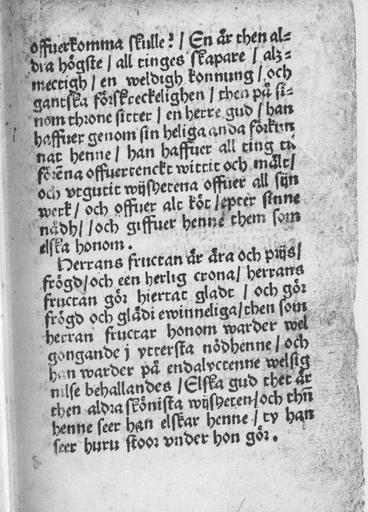 offuerkomma skulle? / En är then al=
dra högste / all tinges skapare / alz=
mectigh / en weldigh konnung / och
gantska förskreckelighen / then på si=
nom throne sitter / en herre gud / han
haffuer genom sin heliga anda förkun
nat henne / han haffuer all ting til
förena offuertenckt wittit och mält /
och vtgutit wijshetena offuer all sijn
werk / och offuer alt köt / epter sinne
nådh / och giffuer henne them som
elska honom.
Herrans fructan är ära och prijs /
frögd / och een herlig crona / herrans
fructan gör hiertat gladt / och gör
frögd och glädi ewinneliga / then som
herran fructar honom warder wel
gongande j yttersta nödhenne / och
han warder på endalyctenne welsig
nilse behallandes / Elska gud thet är
then aldraskönista wijsheten / och thn
henne seer han elskar henne / ty han
seer huru stoor vnder hon gör.